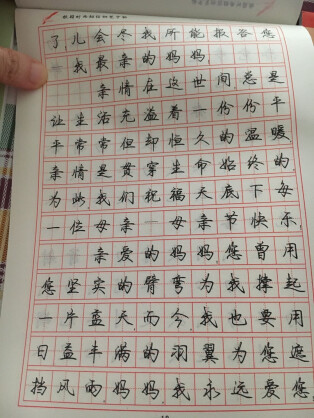 了儿会尽我所能报答您
我最亲的妈妈
亲情在这世间总是
让生活充溢着一份份平
平常常但却恒久的温暖
亲情是贯穿生命始终的
为此我们祝福天底下每
一位母亲母亲节快乐
亲爱的妈妈您曾用
您坚实的臂弯为我撑起
一片蓝天而今我也要用
日益丰满的羽翼为您遮
挡风雨妈妈我永远爱您